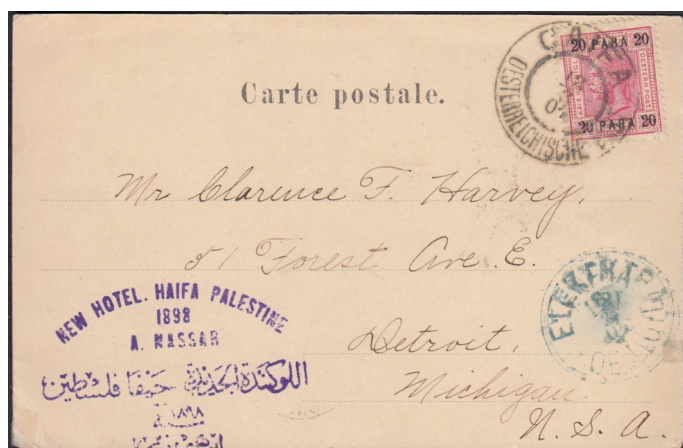 20 PARA 20
20 PARA 20
CAIFA
OESTERREICHISCHE
Carte postale.
Mr Clarence F. Harvey,
51 Forest Ave. E.
Detroit,
Michigan
U. S. A.
NEW HOTEL. HAIFA PALESTINE
1898
A. NASSAR
اللوكندة الجديدة حيفا فلسطين
١٨٩٨